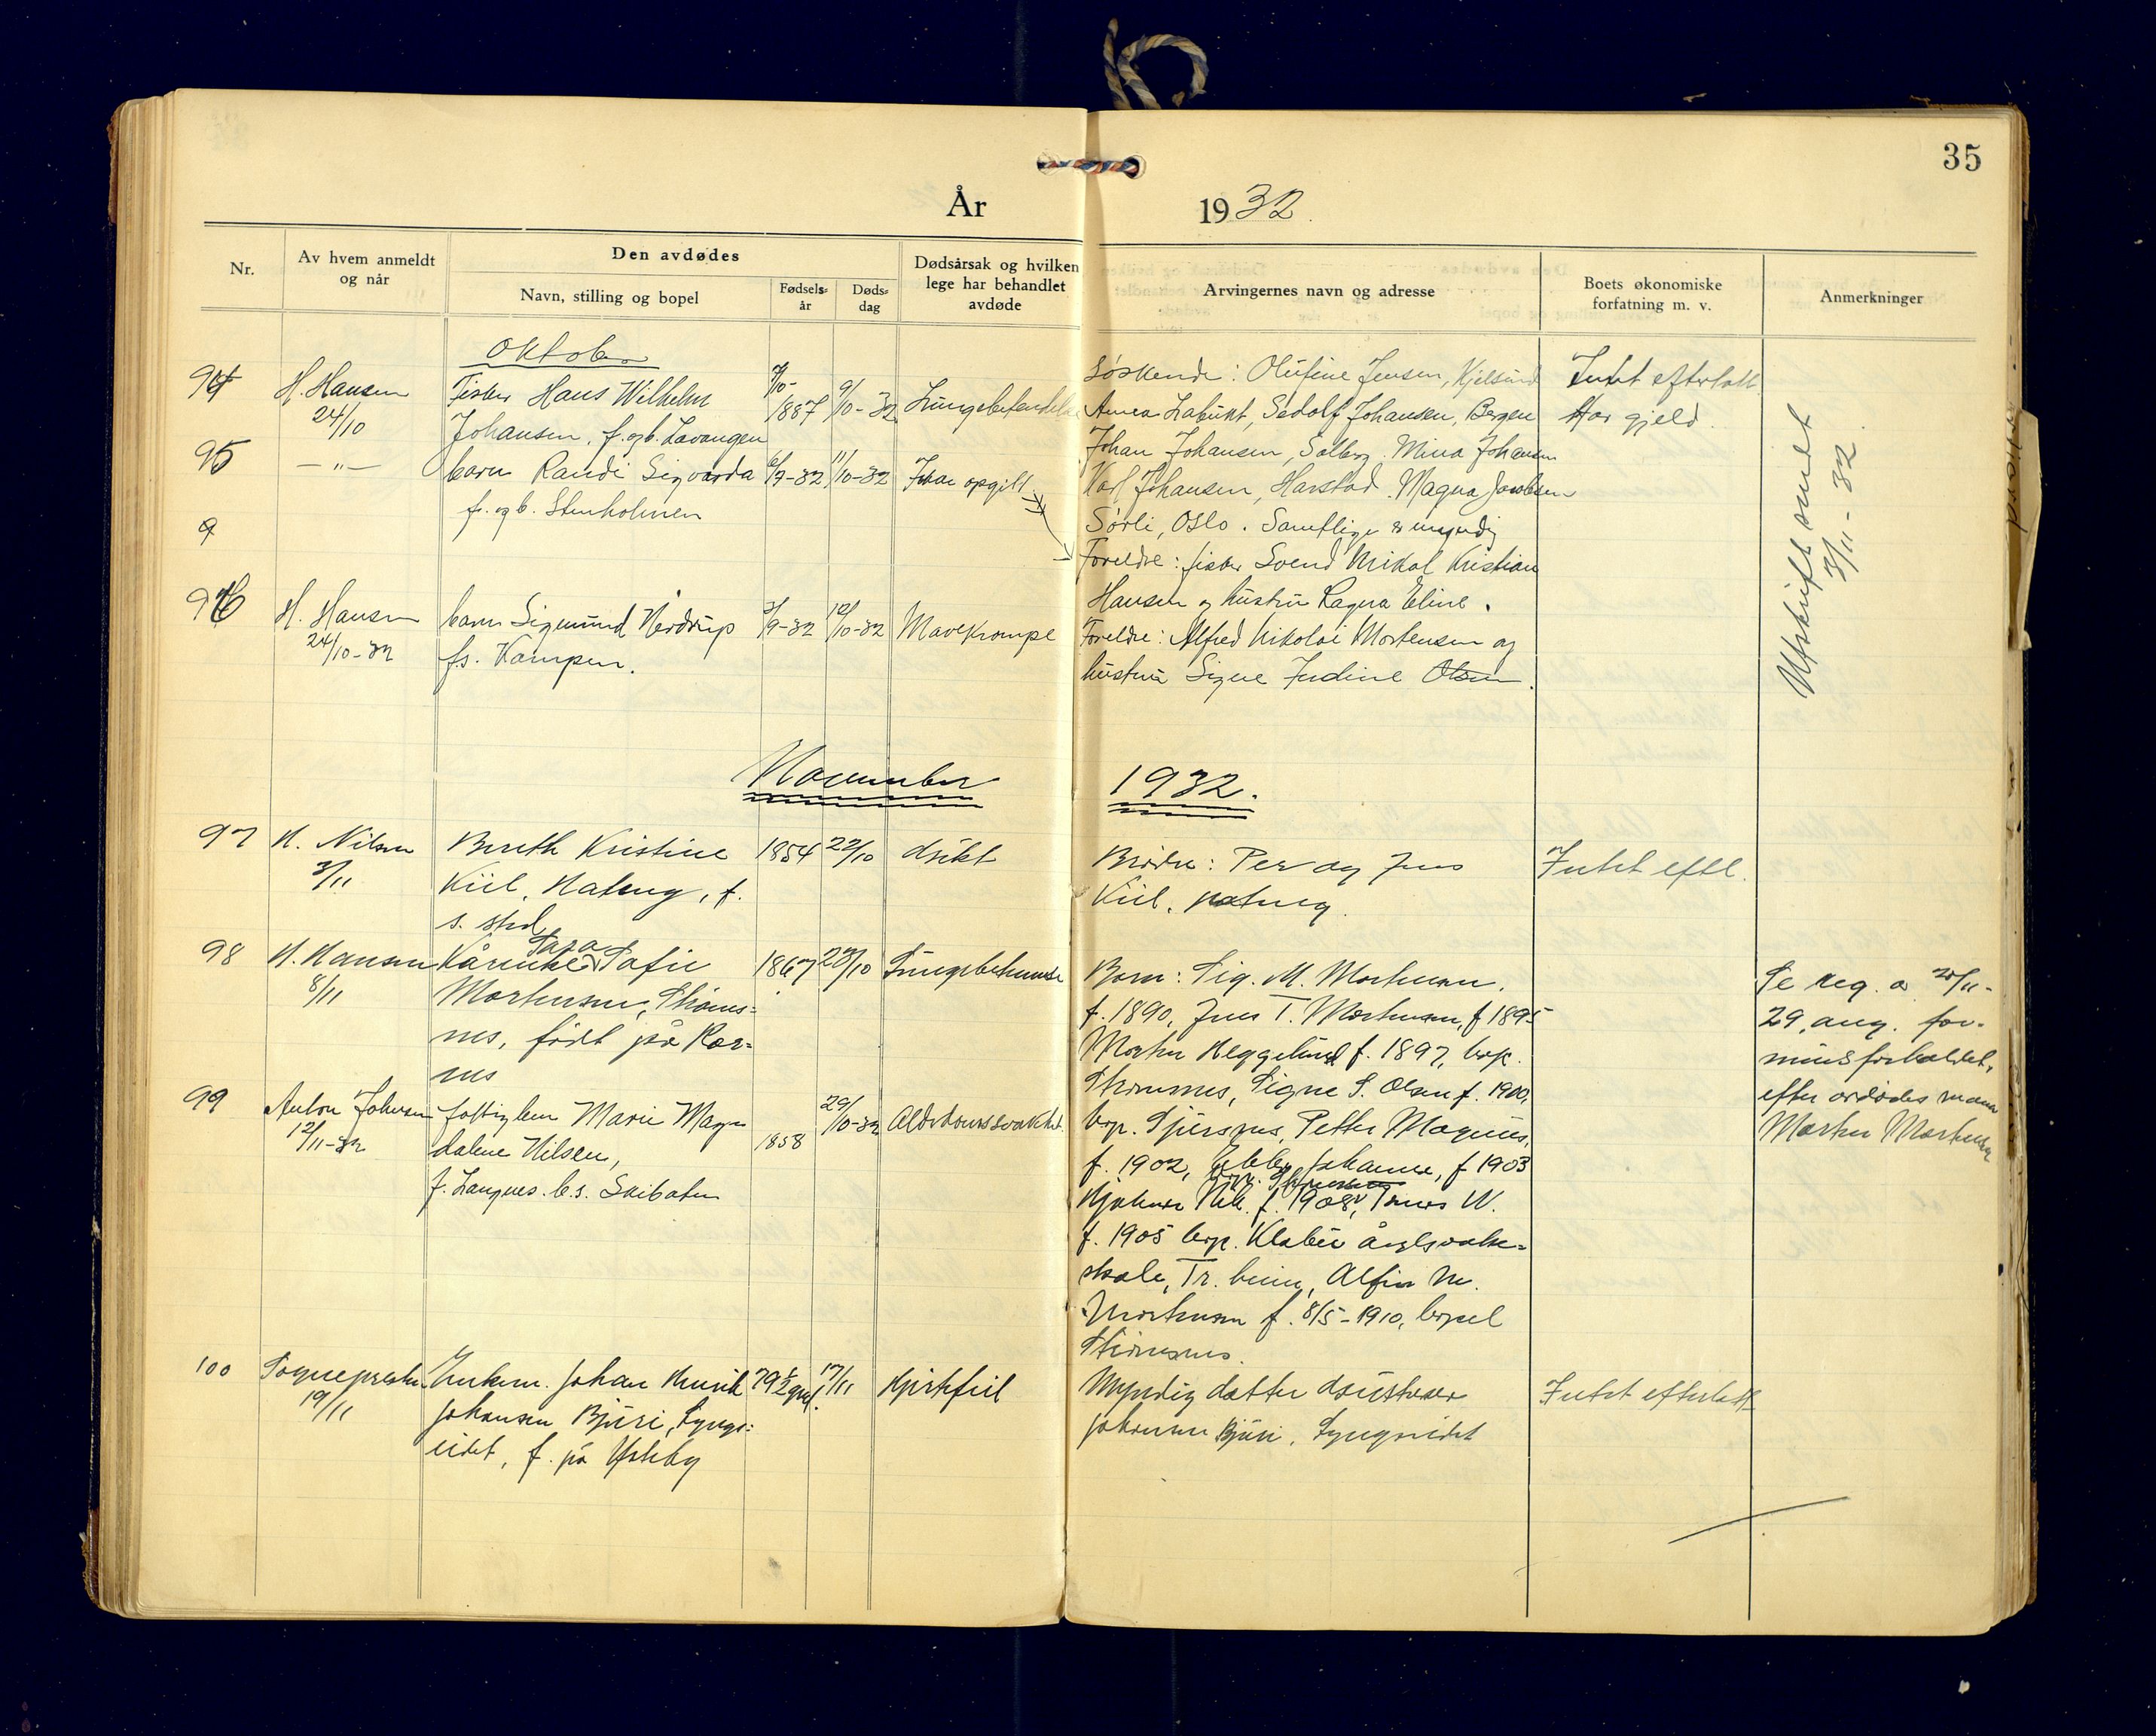 35
År 1932.
Nr.
Av hvem anmeldt
og når
Den avdødes
Navn, stilling og bopel
Fødsels-
år
Døds-
dag
Dødsårsak og hvilken
lege har behandlet
avdøde
Arvingernes navn og adresse
Boets økonomiske
forfatning m. v.
Anmerkninger
Oktober
94
H. Hansen
24/10
Fisker Hans Wilhelm
Johansen, f. og b. Lavangen
/10-
1887
9/10-32
Søskende: Olufine Jensen,
Labukt, Sedolf Johansen, Bergen
Johan Johansen, Solberg. Mina Johansen
Karl Johansen, Harstad. Magna Jacobsen
Sørli, Oslo. Samtlige er myndig
Intet efterlatt
Har gjeld.
95
— " —
barn Randi Sigvarda
f. og b. Stenholmen
6/9-32
11/10-32
Ikke opgitt
Foreldre: fisker Svend Mikal Kristian
Hansen og hustru Ragna Eline.
9
96
H. Hansen
24/10-32
barn Sigmund Nerdrup
fs. Kampen.
/9-32
12/10-32
Mavekrampe
Foreldre: Alfred Nikolai Mortensen og
hustru Signe Indine Olsen.
Utskrift sendt
3/11-32.
November 1932.
97
N. Nilsen
3/11
Bereth Kristine
Kiil, Nateng, f.
s. sted
1854
22/10
drukt
Brødre: Per og Jens
Kiil, Nateng.
Intet eftl.
98
H. Hansen
8/11
Sara
Kårinke Sofie
Mortensen, Strøms=
nes, født på Kor=
nes
1867
23/10
Barn: Sig. M. Mortensen.
f. 1890, Jens T. Mortensen, f 1895
Morten Heggelund f. 1897, bop.
Strømsnes, Signe S. Olsen f. 1900,
bop. Spjersnes, Petter Magnus,
f. 1902, Johanne, f 1903
bop. Strømsnes
Hjalmar Nik. f. 1908,
f. 1905 bop. Klæbu
skole, Tr. heim, Alfin M.
Mortensen f. 8/5-1910, bopel
Strømsnes.
Se reg. a 20/11-
29, ang. for-
muesforholdet,
efter avdødes mann
Morten Mortensen
99
Anton Johansen
12/11-32
fattiglem Marie Mag
dalene Nilsen,
f. Langnes. b.s. Skibotn
1858
29/10-32
Alderdomssvakhet
100
Sognepresten
19/11
Enkem. Johan Henrik
Johansen Bjuri, Lyngs=
eidet, f. på Ytteby
79 1/2 gml.
17/11
Hjertefeil
Myndig datter
Johansen Bjuri, Lyngseidet
Intet efterlatt